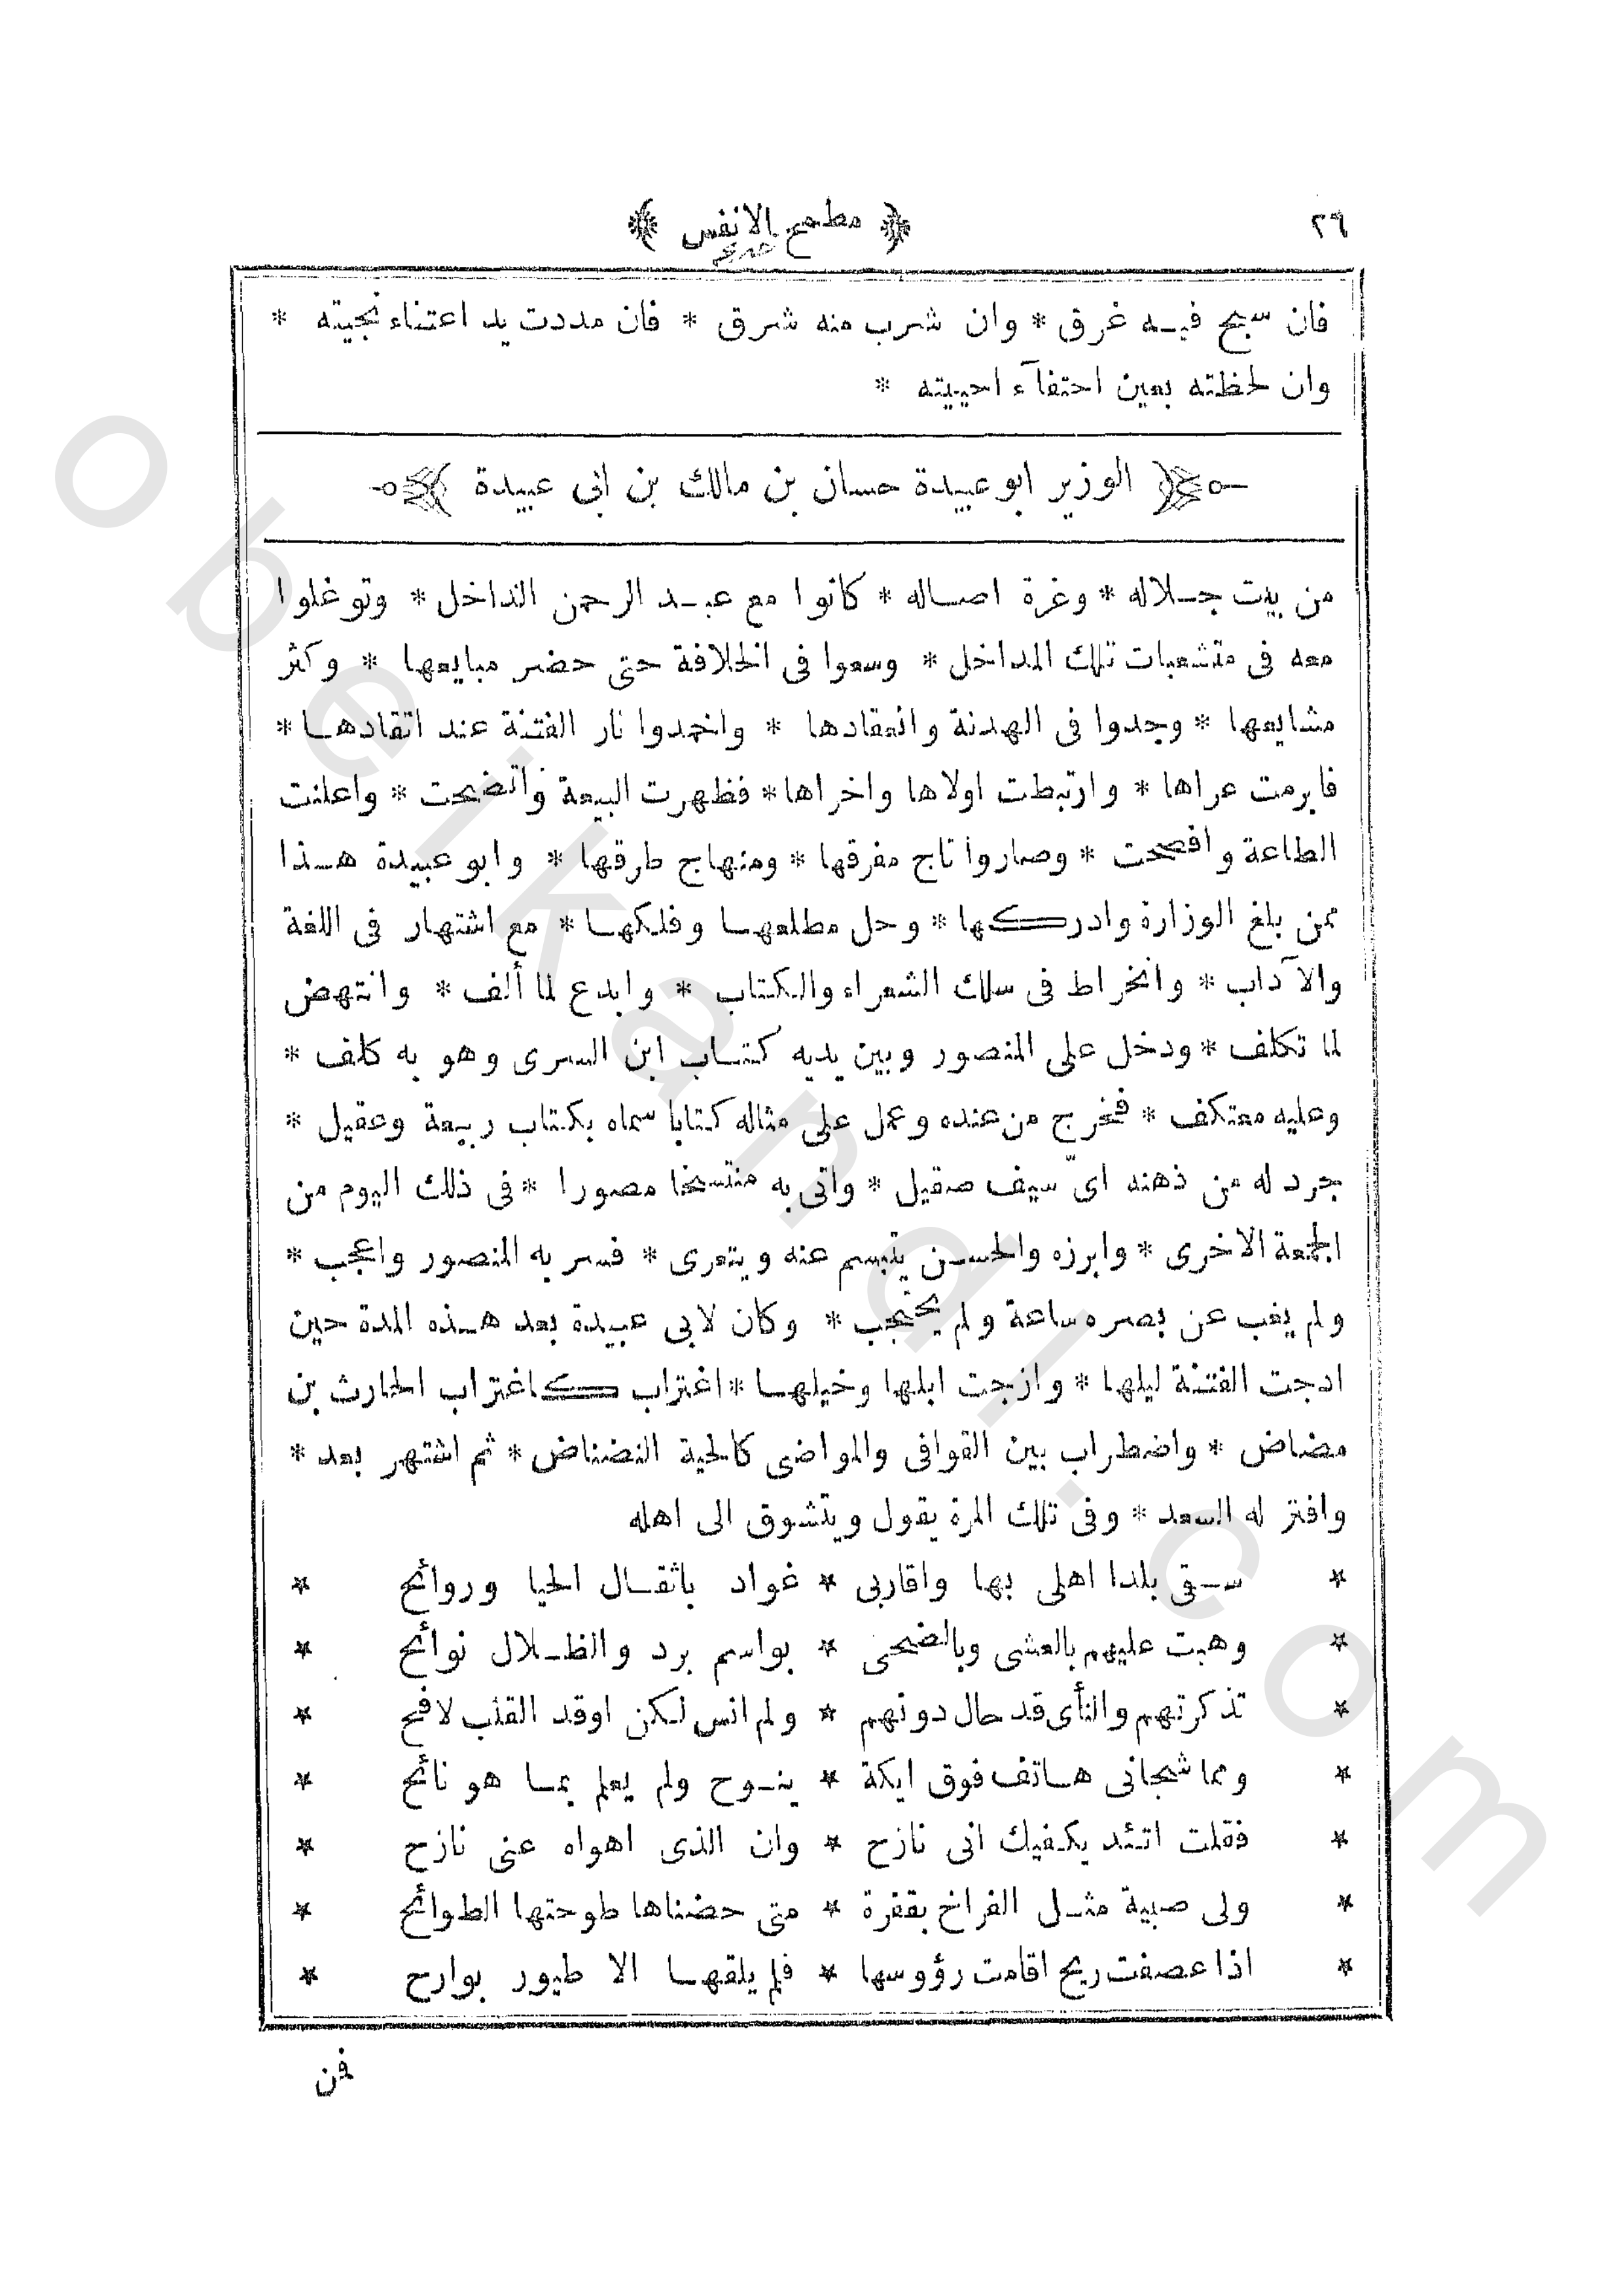 ٢٦
﴿ مطمح الانفس ﴾
فان سبح فيه غرق * وان شرب منه شرق * فان مددت يد اعتناء نجيته *
وان لحظته بعين احتفآء احييته *
الوزير ابو عبيدة حسان بن مالك بن ابى عبيدة
من بيت جلاله * وغرة اصاله * كانوا مع عبد الرحمن الداخل * وتوغلوا
معه فى متشعبات تلك المداخل * وسعوا فى الخلافة حتى حضر مبايعها * وكثر
مشايعها * وجدوا فى الهدنة وانعقادها * واخمدوا نار الفتنة عند اتقادها *
فابرمت عراها * وارتبطت اولاها واخراها * فظهرت البيعة واتضحت * واعلنت
الطاعة وافصحت * وصاروا تاج مفرقها * ومنهاج طرقها * وابو عبيدة هذا
ممن بلغ الوزارة وادركها * وحل مطلعها وفلكها * مع اشتهار فى اللغة
والآداب * وانخراط فى سلك الشعراء والكتاب * وابدع لما ألف * وانتهض
لما تكلف * ودخل على المنصور وبين يديه كتاب ابن السرى وهو به كلف *
وعليه معتكف * فخرج من عنده وعمل على مثاله كتابا سماه بكتاب ربيعة وعقيل *
جرد له من ذهنه اىّ سيف صقيل * واتى به منتسخا مصورا * فى ذلك اليوم من
الجمعة الاخرى * وابرزه والحسن يتبسم عنه ويتعرى * فسر به المنصور واعجب *
ولم يغب عن بصره ساعة ولم يحتجب * وكان لابى عبيدة بعد هذه المدة حين
ادجت الفتنة ليلها * وازجت ابلها وخيلها * اغتراب كاغتراب الحارث بن
مضاض * واضطراب بين القوافى والمواضى كالحية النضناض * ثم اشتهر بعد *
وافتر له السعد * وفى تلك المرة يقول ويتشوق الى اهله
* سقى بلدا اهلى بها واقاربى * غواد باثقال الحيا وروائح *
* وهبت عليهم بالعشى وبالضحى * بواسم برد والظلال نوائح *
* تذكرتهم والنأى قد حال دونهم * ولم انس لكن اوقد القلب لافح *
* ومما شجانى هاتف فوق ايكة * ينوح ولم يعلم بما هو نائح *
* فقلت اتئد يكفيك انى نازح * وان الذى اهواه عنى نازح *
* ولى صبية مثل الفراخ بقفرة * متى حضناها طوحتها الطوائح *
* اذا عصفت ريح اقامت رؤوسها * فلم يلقها الا طيور بوارح *
فن
obeikandl.com